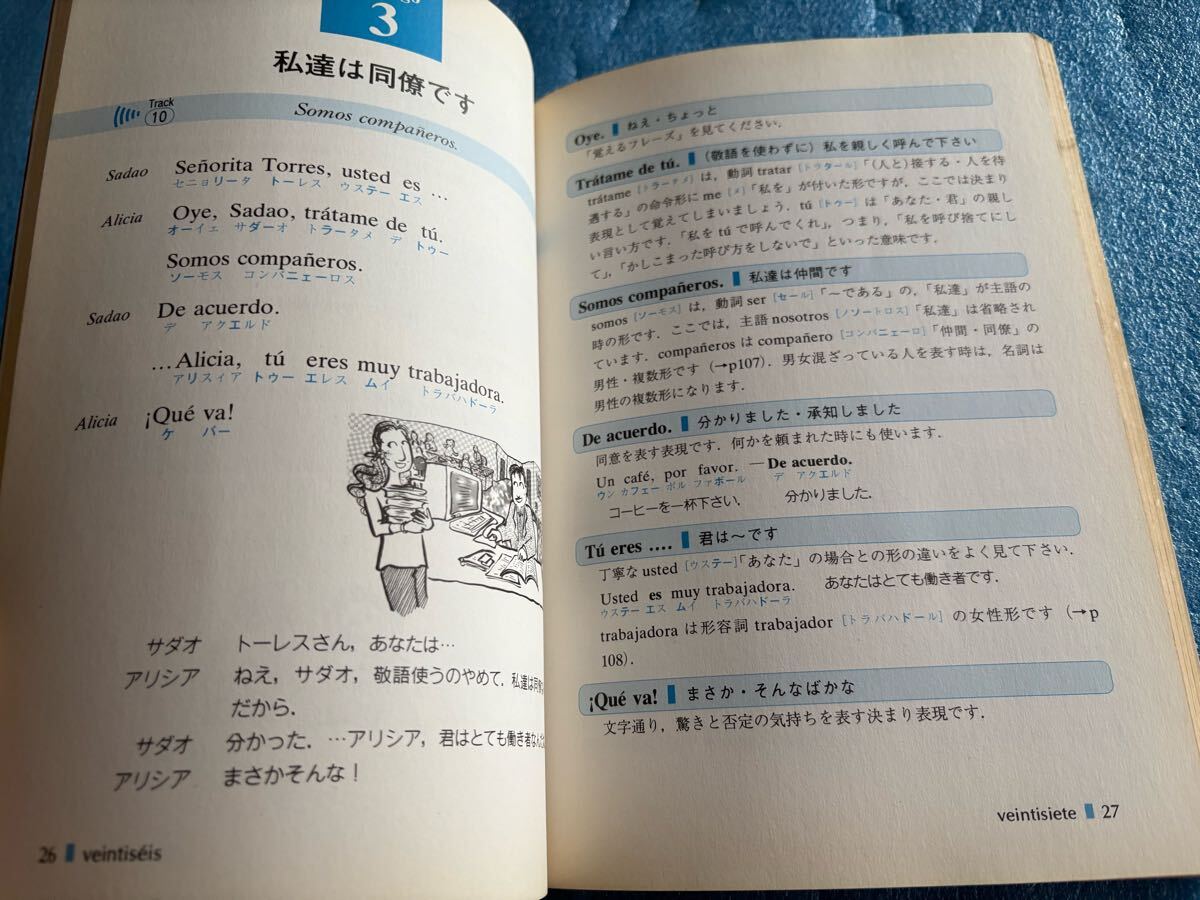 3
私達は同僚です
Track
10
Somos compañeros.
Sadao Señorita Torres, usted es …
セニョリータ トーレス ウステー エス
Alicia Oye, Sadao, trátame de tú.
オーイェ サダーオ トラータメ デ トゥー
Somos compañeros.
ソーモス コンパニェーロス
Sadao De acuerdo.
デ アクエルド
…Alicia, tú eres muy trabajadora.
アリスィア トゥー エレス ムイ トラバハドーラ
Alicia ¡Qué va!
ケ バー
サダオ トーレスさん，あなたは…
アリシア ねえ，サダオ，敬語使うのやめて．私達は同僚
だから．
サダオ 分かった．…アリシア，君はとても働き者なん
アリシア まさかそんな！
26 veintiséis
Oye. ねえ・ちょっと
「覚えるフレーズ」を見てください．
Trátame de tú. （敬語を使わずに）私を親しく呼んで下さい
trátame [トラータメ] は，動詞 tratar [トラタール]「（人と）接する・人を待
遇する」の命令形に me [メ]「私を」が付いた形ですが，ここでは決まり
表現として覚えてしまいましょう．tú [トゥー] は「あなた・君」の親し
い言い方です．「私を tú で呼んでくれ」，つまり，「私を呼び捨てにし
て」，「かしこまった呼び方をしないで」といった意味です．
Somos compañeros. 私達は仲間です
somos [ソーモス] は，動詞 ser [セール]「〜である」の，「私達」が主語の
時の形です．ここでは，主語 nosotros [ノソートロス]「私達」は省略され
ています．compañeros は compañero [コンパニェーロ]「仲間・同僚」の
男性・複数形です（→p107）．男女混ざっている人を表す時は，名詞は
男性の複数形になります．
De acuerdo. 分かりました・承知しました
同意を表す表現です．何かを頼まれた時にも使います．
Un café, por favor. — De acuerdo.
ウン カフェー ポル ファボール デ アクエルド
コーヒーを一杯下さい． 分かりました．
Tú eres …. 君は〜です
丁寧な usted [ウステー]「あなた」の場合との形の違いをよく見て下さい．
Usted es muy trabajadora. あなたはとても働き者です．
ウステー エス ムイ トラバハドーラ
trabajadora は形容詞 trabajador [トラバハドール] の女性形です（→p
108）．
¡Qué va! まさか・そんなばかな
文字通り，驚きと否定の気持ちを表す決まり表現です．
veintisiete 27